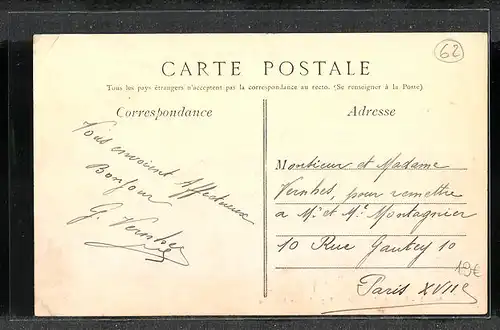 62
CARTE POSTALE
Tous les pays étrangers n'acceptent pas la correspondance au recto. (Se renseigner à la Poste)
Correspondance
Adresse
Vous envoient affectueux
Bonjour
G. Vernhes
Monsieur et Madame
Vernhes, pour remettre
a Mr et Me Montagnier
10 Rue Gautey 10
Paris XVIIe
19€